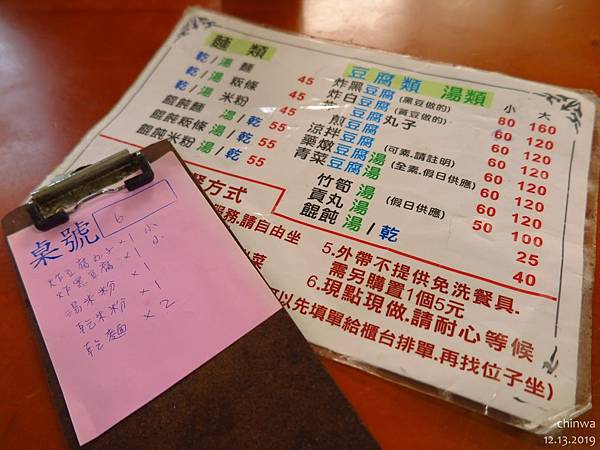 麵類
乾/湯 麵 45
乾/湯 粄條 45
乾/湯 米粉 45
餛飩麵 湯/乾 55
餛飩粄條 湯/乾 55
餛飩米粉 湯/乾 55
豆腐類 湯類 小 大
炸黑豆腐(黑豆做的) 80 160
炸白豆腐(黃豆做的) 60 120
豆腐丸子 60 120
煎豆腐 60 120
涼拌豆腐(可素,請註明) 60 120
藥燉豆腐湯(全素.假日供應) 60 120
青菜豆腐湯 60 120
竹筍湯(假日供應) 50 100
貢丸湯 25
餛飩湯/乾 40
方式
服務,請自由坐
菜
5.外帶不提供免洗餐具.
需另購置1個5元
6.現點現做.請耐心等候
以先填單給櫃台排單.再找位子坐)
桌號 6
炸豆腐丸子×1小
炸黑豆腐×1小
湯米粉×1
乾米粉×1
乾麵×2
chinwa
12.13.2019